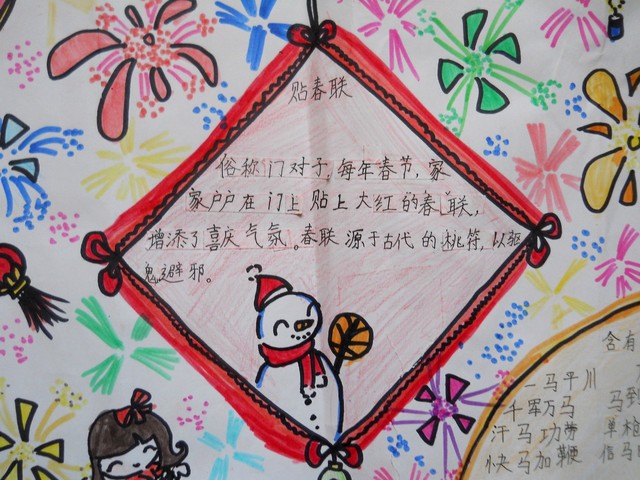 贴春联
俗称门对子,每年春节,家
家户户在门上贴上大红的春联,
增添了喜庆气氛。春联源于古代的桃符,以驱
鬼避邪。
含有
一马平川
马到
千军万马
单枪
汗马功劳
信马
快马加鞭